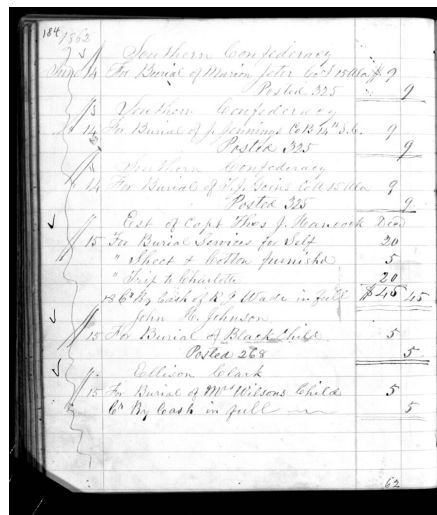 184 1862
Southern Confederacy
14 For Burial of Marion Jeter Co 15 Ala $ 9
Posted 325 9
Southern Confederacy
14 For Burial of J. Jennings Co B 14th S.C. 9
Posted 325 9
Southern Confederacy
14 For Burial of Goins Co A 15 Ala 9
Posted 325 9
Est of Capt Thos J. Hancock Dead
15 For Burial Services for Self 20
" Sheet & Cotton furnished 5
" Trip to Charlotte 20
18 Cr By Cash of R J Wade in full $45 45
John H. Johnson
15 For Burial of Black Child 5
Posted 268 5
Ellison Clark
15 For Burial of Mrs Wilsons Child 5
Cr By Cash in full 5
62